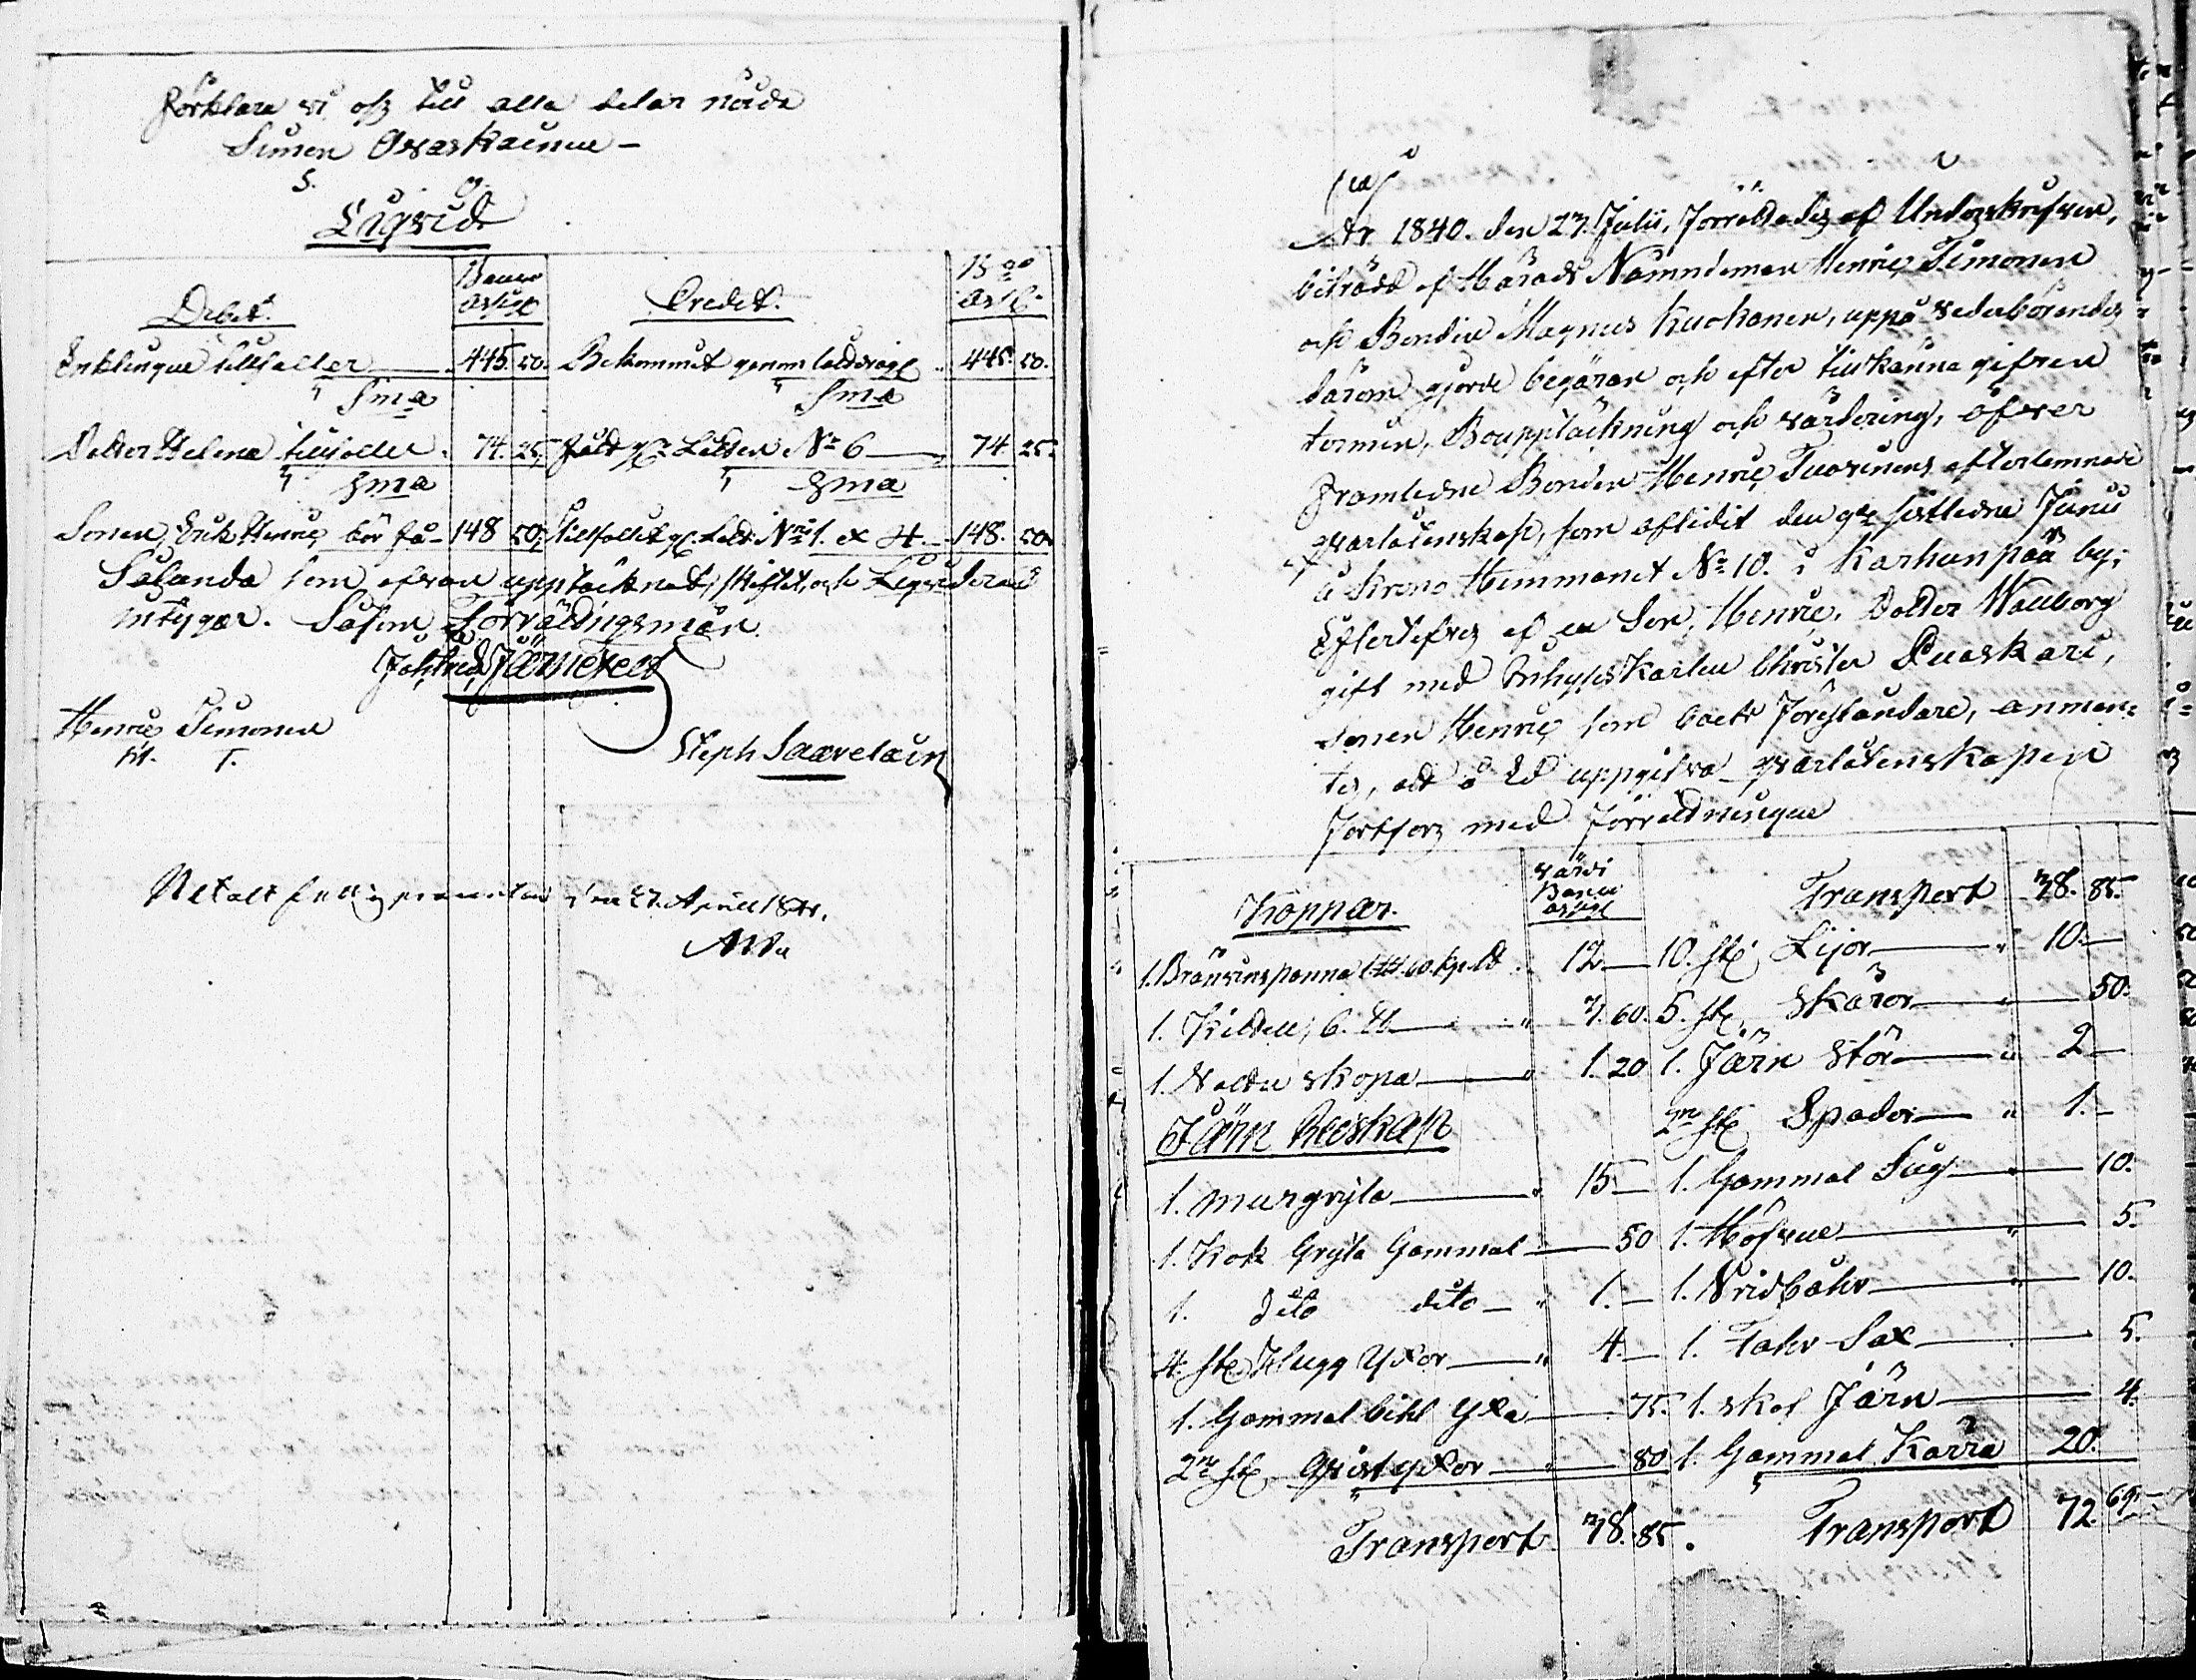 Förklara vi oss till alla delar nöida
Simon Ovaskainen -
S. O.
Liqvid
Debet. Banco assign Credit. B:co ass:
Enklingen tillfaller 445. 50. Bekommit genom lottdrägt 445. 50.
Sma Sma
Dotter Helena tillfaller 74. 25. Föllt gm Lotten No 6 74 25.
Sma Sma
Sonen Erik Henric bör få 148 50. Tillfallit gm Lott. No 1. et 4. 148. 50.
Sålunda som ofvan upptecknat, skiftat, och Liqviderad
intygar. Såsom Förrättningsmän.
Joh. Fried. Järnefelt
Henric Timonen
H. T.
Steph Saarelain
Betalt fattigprocenten den 27. April 1841.
År 1840. den 27. Julii, förrättades af Undertecknad,
biträdd af Härads Nämndeman Henric Timonen
och Bonden Magnus Kuokanen, uppå vederbörendes
därom gjorde begäran och efter tillkänna gifven
termin, Bouppteckning och värdering, öfver
framledne Bonden Henric Tuovinens efterlemnade
qvarlåtenskap, som aflidit den 9de sistledne Junii
å Krono Hemmanet No 10. i Karhunpää by;
Efterlefves af en Son, Henric, Dotter Wallborg
gift med Inhyses Karlen Christer Puoskari,
sonen Henric som boets föreståndare, anmen-
tes, att å Ed uppgifva qvarlåtenskapen
Fortfors med förrättningen
Koppar. värdi Banco assign Transport 38. 85.
1. Bränvinspanna 1 60. kp:ld 12 — 10. st: Lijor 10. —
1. Kittell, 6. 7. 60. 5. st: Skäror — 50.
1. Vattu skopa 1. 20 1. Järn Stör 2 —
Järn Redskap 2ne st: Spader 1. —
1. murgryta 15 — 1. Gammal Sug — 10.
1. Kok Gryta Gammal — 50 1. Höfvel — 5.
1. dito dito 1. — 1. Vridbåhr — 10.
4. st: Hugg Yxor 4. — 1. Sax — 5.
1. Gammal bihl Yxa — 75. 1. skaf Järn — 4.
2ne st: Qvist yxor — 80 1. Gammal Kärra 20.
Transport 38. 85. Transport 72. 69.